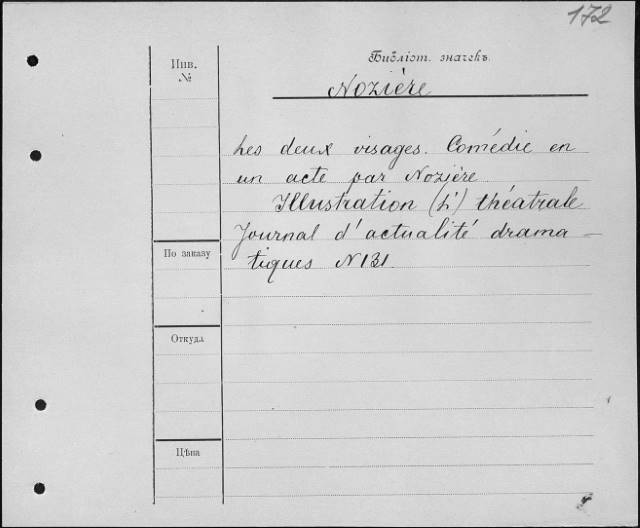 172
Библіот. значекъ.
Инв.
№
Nozière
Les deux visages. Comédie en
un acte par Nozière
Illustration (L') théatrale
Journal d'actualité drama-
tiques N131.
По заказу
Откуда
Цѣна